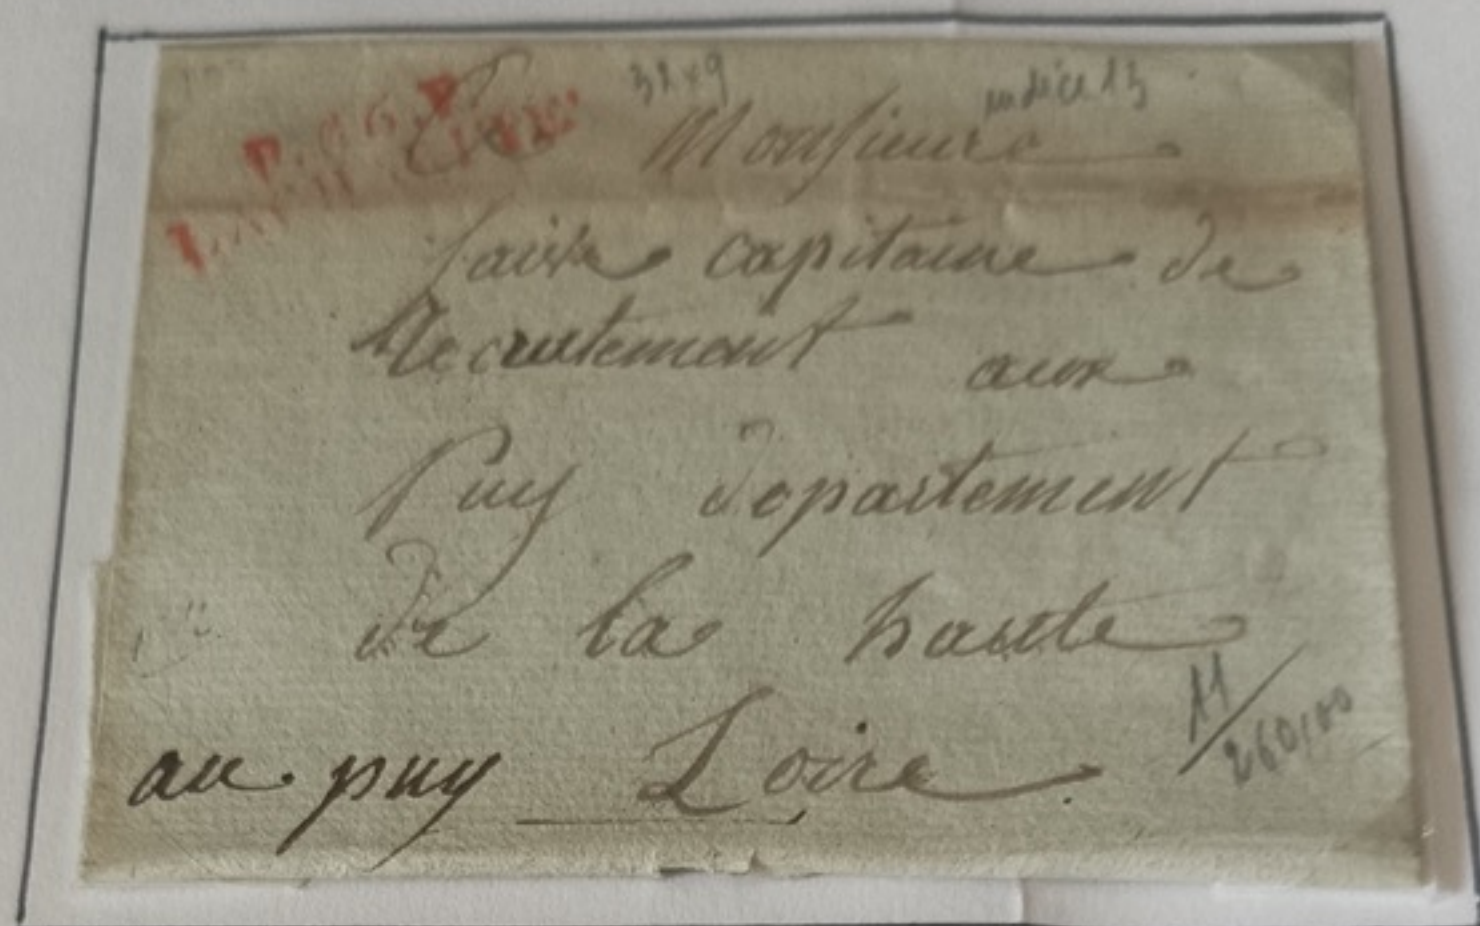 P.66.P
32x9
indice 13
A Monsieur
faivre capitaine de
Recrutement aux
Puy departement
de la haute
Loire
au puy
11/260,00